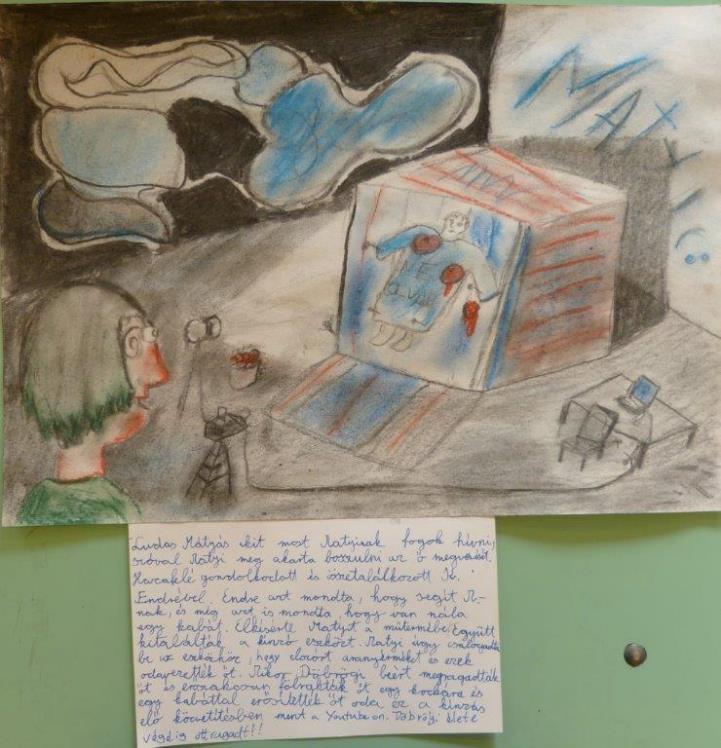 MAX
NE
Ludas Mátyás akit most Matyinak fogok hívni,
szóval Matyi meg akarta bosszulni az ő megverését.
gondolkodott és összetalálkozott Sz.
Endrével. Endre azt mondta, hogy segít M-
nak, és még azt is mondta, hogy van nála
egy kabát. Elkísérte Matyit a műtermébe. Együtt
kitalálták a kínzó eszközt. Matyi úgy csalogatta
be az eszközhöz, hogy elszórt aranyérméket és ezek
odavezették őt. Mikor Döbrögi beért megragadták
őt és erőszakosan felrakták őt egy kockára és
egy kabáttal erősítették őt oda és a kínzás
élő közvetítésben ment a Youtube on. Döbrögi élete
végéig ott ragadt!!!